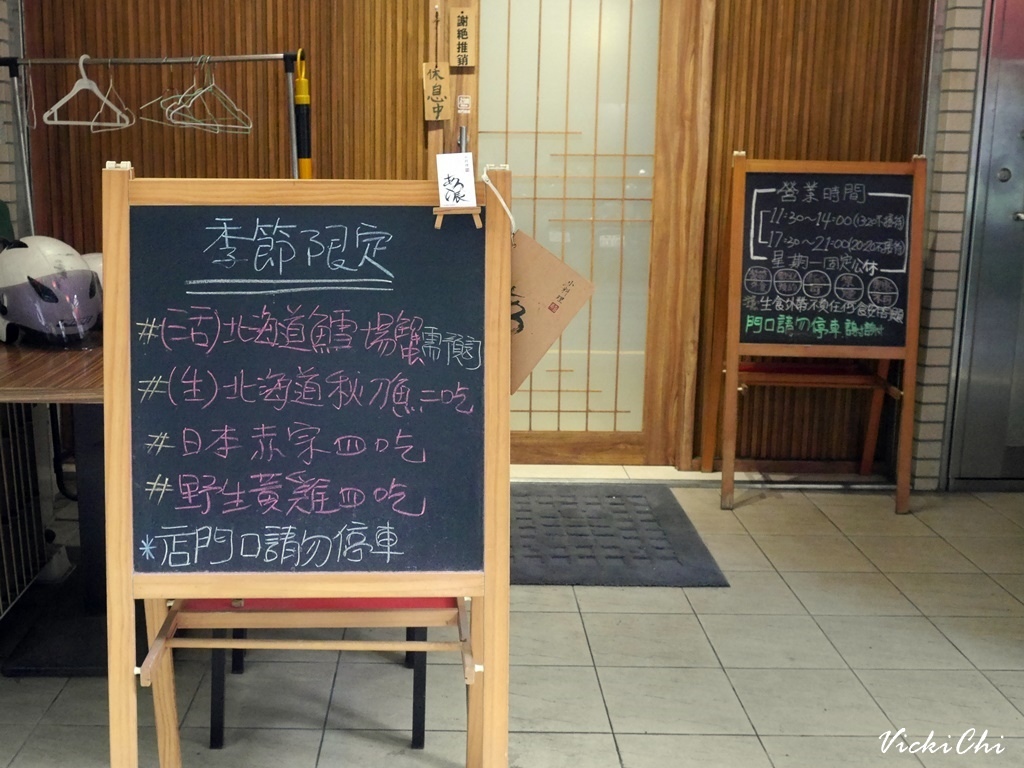 謝絕推銷
休息中
季節限定
#(三活)北海道鱈場蟹需預訂
#(生)北海道秋刀魚二吃
#日本赤宗四吃
#野生黃雞四吃
*店門口請勿停車
小料理
營業時間
11:30～14:00(13:20不接待)
17:30～21:00(20:20不接待)
星期一固定公休
門口請勿停車
VickiChi